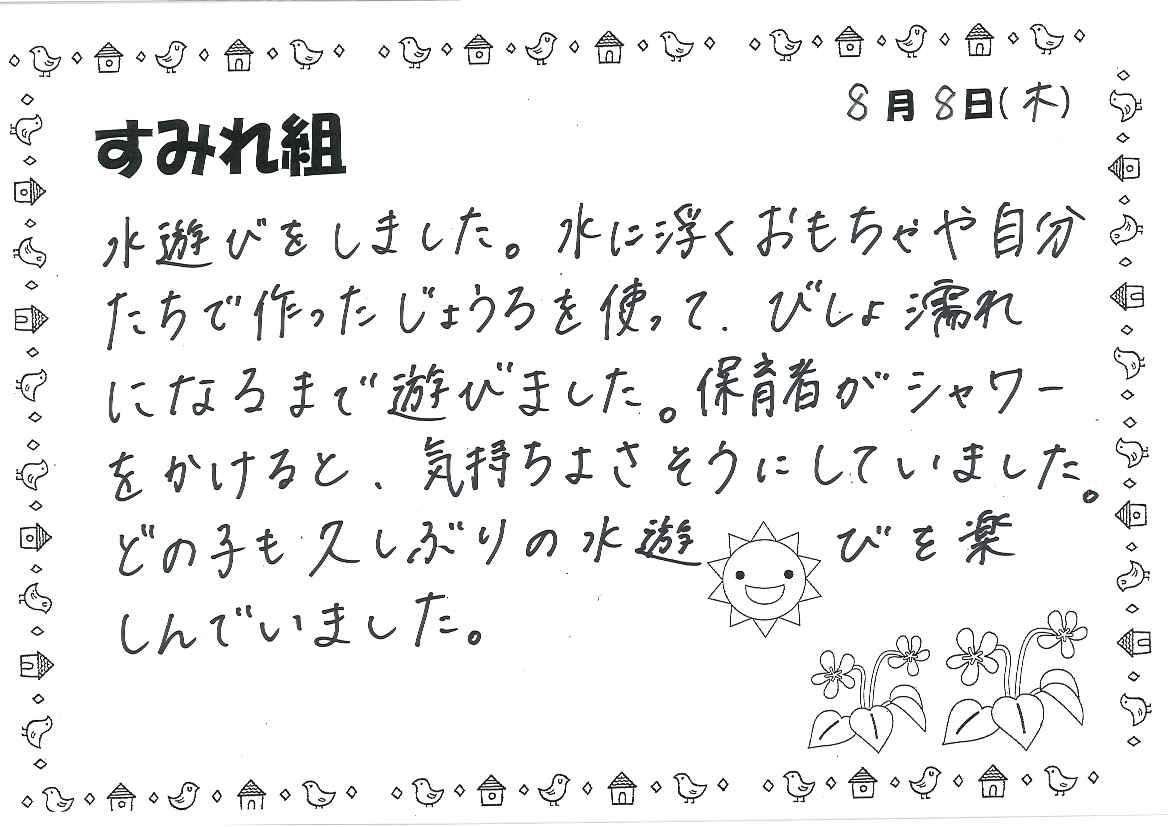 8月8日(木)
すみれ組
水遊びをしました。水に浮くおもちゃや自分
たちで作ったじょうろを使って、びしょ濡れ
になるまで遊びました。保育者がシャワー
をかけると、気持ちよさそうにしていました。
どの子も久しぶりの水遊びを楽
しんでいました。